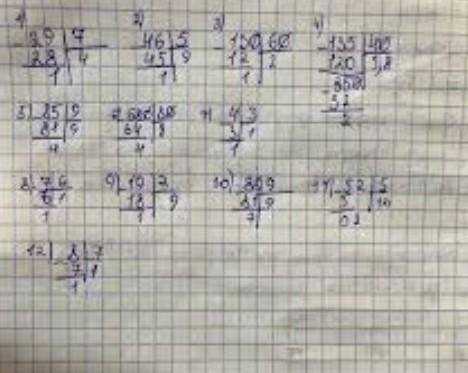 1) 29 | 7
28 | 4
1
2) 46 | 5
45 | 9
1
3) 130 | 60
12 | 2
1
4) 135 | 400
120 | 1,8
2
5) 85 | 9
81 | 9
4
64 | 8
4
7) 4 | 3
3 | 1
1
8) 7 6
6 1
1
9) 19 | 2
18 | 9
1
10) 89 9
81 9
11) 52 | 5
5 | 10
02
12) 8 | 7
7 | 1
1